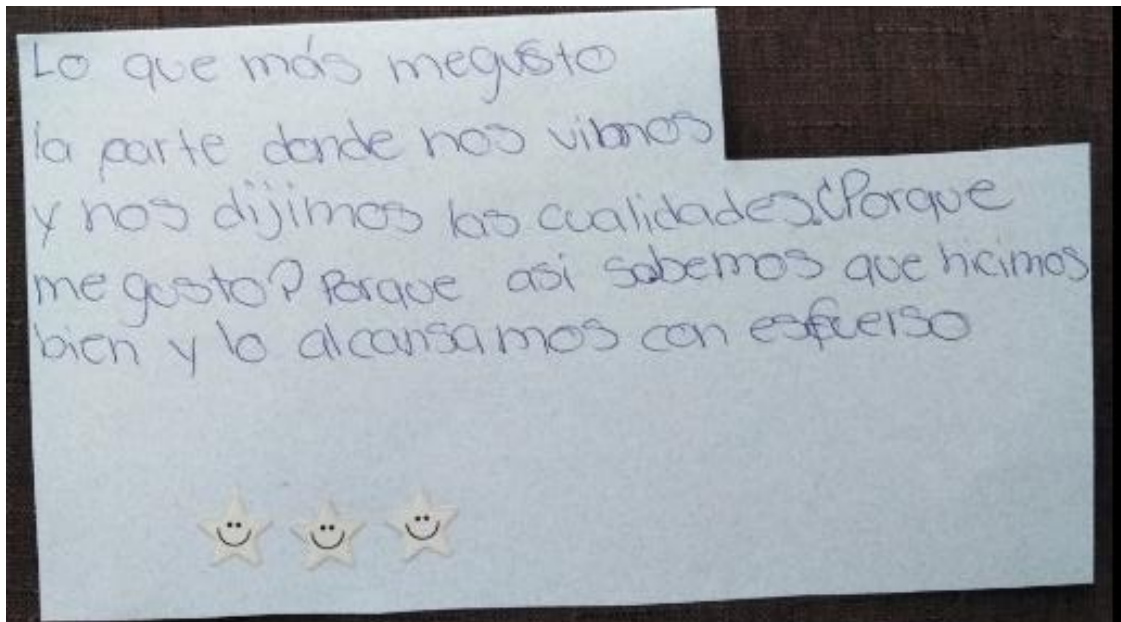 Lo que más megusto
la parte donde nos vimos
y nos dijimos las cualidades.¿Porque
me gusto? Porque asi sabemos que hicimos
bien y lo alcansamos con esfuerso